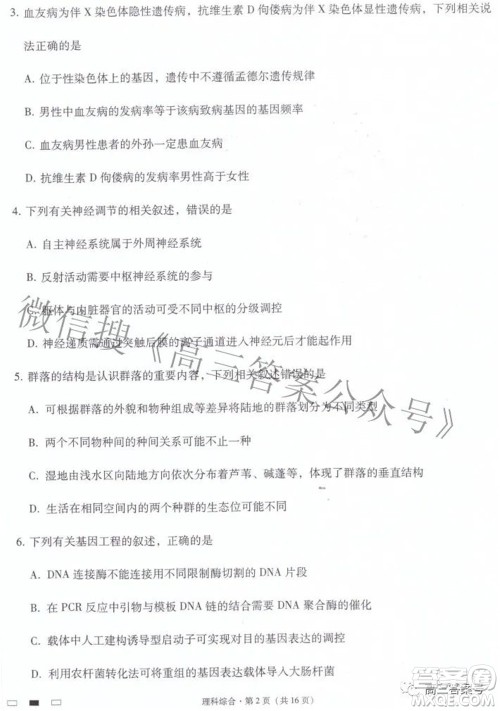 3. 血友病为伴 X 染色体隐性遗传病，抗维生素 D 佝偻病为伴 X 染色体显性遗传病，下列相关说
法正确的是
A. 位于性染色体上的基因，遗传中不遵循孟德尔遗传规律
B. 男性中血友病的发病率等于该病致病基因的基因频率
C. 血友病男性患者的外孙一定患血友病
D. 抗维生素 D 佝偻病的发病率男性高于女性
4. 下列有关神经调节的相关叙述，错误的是
A. 自主神经系统属于外周神经系统
B. 反射活动需要中枢神经系统的参与
C. 躯体与内脏器官的活动可受不同中枢的分级调控
D. 神经递质需通过突触后膜的离子通道进入神经元后才能起作用
5. 群落的结构是认识群落的重要内容，下列相关叙述错误的是
A. 可根据群落的外貌和物种组成等差异将陆地的群落划分为不同类型
B. 两个不同物种间的种间关系可能不止一种
C. 湿地由浅水区向陆地方向依次分布着芦苇、碱蓬等，体现了群落的垂直结构
D. 生活在同一水域中的两个种群的生态位可能不同
6. 下列有关基因工程的叙述，正确的是
A. DNA 连接酶不能连接被不同限制酶切割的 DNA 片段
B. 在 PCR 反应中引物与模板 DNA 的结合需要 DNA 聚合酶的催化
C. 载体中人工构建诱导型启动子可实现对目的基因表达的调控
D. 利用农杆菌转化法可将重组的基因表达载体导入大肠杆菌
理科综合·第 2 页（共 16 页）
微信搜《高三答案公众号》
高三答案号
答案圈
MXQE.COM